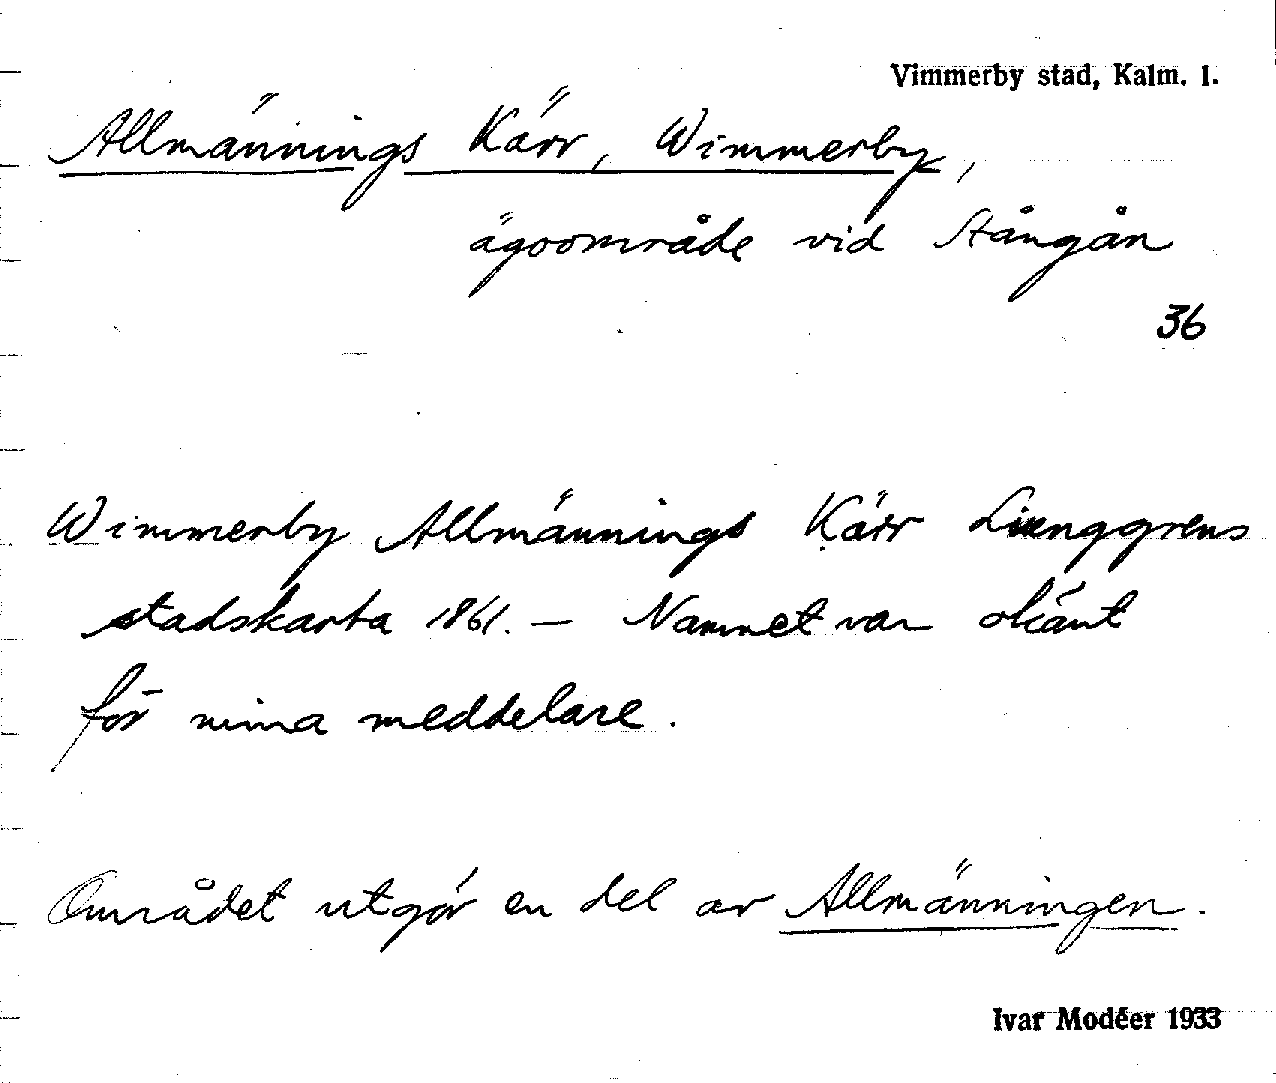 Vimmerby stad, Kalm. l.
Allmännings Kärr, Wimmerby,
ägoområde vid Stångån
36
Wimmerby Allmännings Kärr Ljunggrens
stadskarta 1861. — Namnet var okänt
för mina meddelare.
Området utgör en del av Allmänningen.
Ivar Modéer 1933